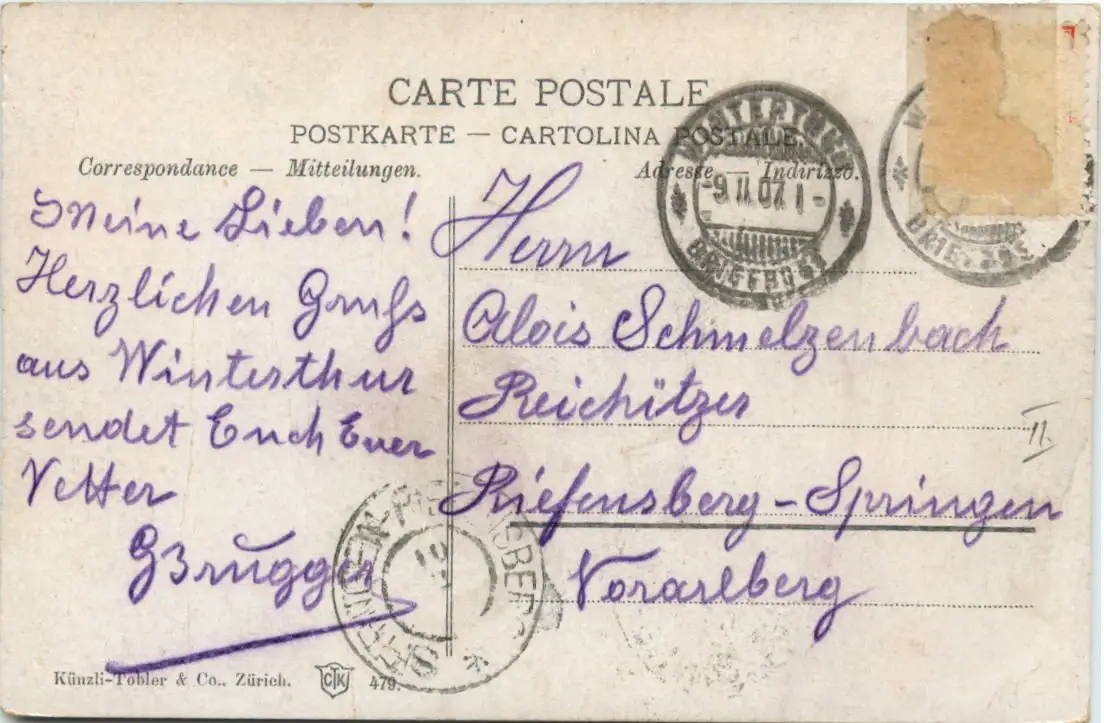 CARTE POSTALE
POSTKARTE — CARTOLINA POSTALE.
Correspondance — Mitteilungen.
Adresse — Indirizzo.
WINTERTHUR
-9.II.07. I -
BRIEFPOST
BRIEFPOST
Meine Lieben!
Herzlichen Gruss
aus Winterthur
sendet Euch Euer
Vetter
GBrugger
Herrn
Alois Schmelzenbach
Reichitzer
Riefensberg-Springen
Vorarlberg
II.
SPRINGEN-RIEFENSBERG
10
Künzli-Tobler & Co., Zürich.
CTK
479.